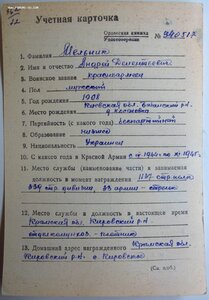 Учетная карточка
Орденская книжка
№
1. Фамилия Мельник
2. Имя и отчество Андрей
3. Воинское звание красноармеец
4. Пол мужской
5. Год рождения 1908
6. Место рождения Киевская обл.
7. Партийность (с какого года) беспартийный
8. Образование низшее
9. Национальность Украинец
10. С какого года в Красной Армии с 1944 по 1945 г.
11. Место службы (наименование части) и занимаемая
должность в момент награждения 1137 стр. полк
339 стр. дивизия, 33 армии - стрелок
12. Место службы и должность в настоящее время
Крымская обл. Кировский р-н
13. Домашний адрес награжденного Крымская обл.
Кировский р-н с. Кировское
(См. н/об.)